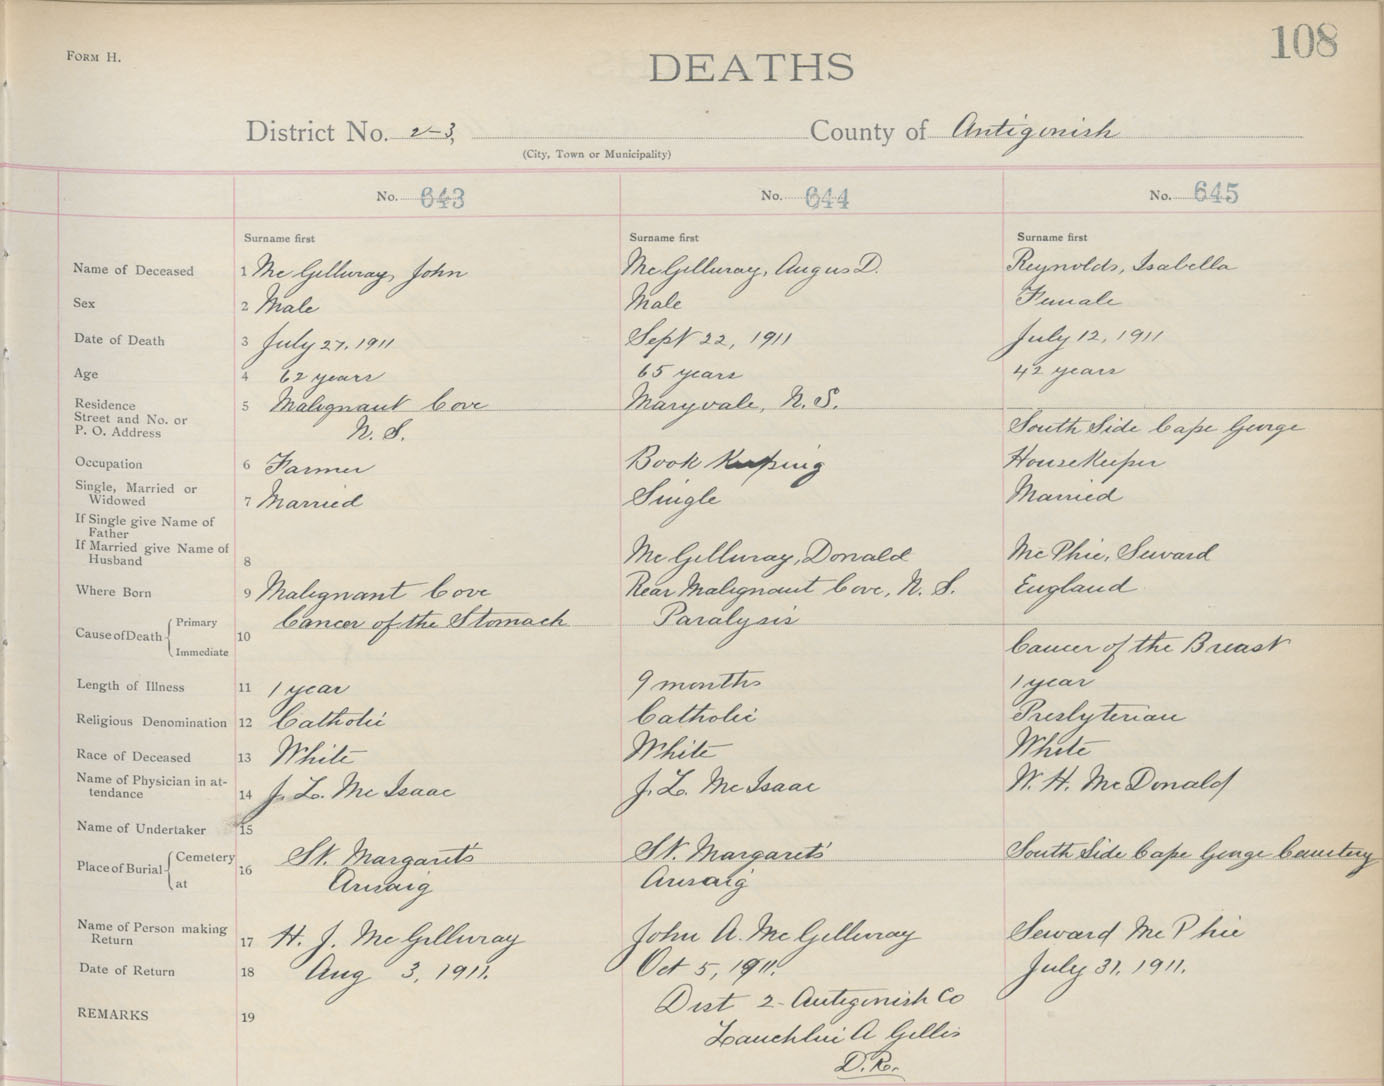 FORM H.
108
DEATHS
District No. 2-3, County of Antigonish
(City, Town or Municipality)
No. 643 No. 644 No. 645
Surname first Surname first Surname first
Name of Deceased 1 McGillivray, John McGillivray, Angus D. Reynolds, Isabella
Sex 2 Male Male Female
Date of Death 3 July 27, 1911 Sept 22, 1911 July 12, 1911
Age 4 62 years 65 years 42 years
Residence Street and No. or P. O. Address 5 Malignant Cove N. S. Maryvale, N. S. South Side Cape George
Occupation 6 Farmer Book Keeping HouseKeeper
Single, Married or Widowed 7 Married Single Married
If Single give Name of Father
If Married give Name of Husband 8 McGillivray, Donald McPhie, Seward
Where Born 9 Malignant Cove Rear Malignant Cove, N. S. England
Cause of Death Primary Immediate 10 Cancer of the Stomach Paralysis Cancer of the Breast
Length of Illness 11 1 year 9 months 1 year
Religious Denomination 12 Catholic Catholic Presbyterian
Race of Deceased 13 White White White
Name of Physician in attendance 14 J. L. McIsaac J. L. McIsaac W. H. McDonald
Name of Undertaker 15
Place of Burial Cemetery at 16 St. Margaret's Arisaig St. Margaret's Arisaig South Side Cape George Cemetery
Name of Person making Return 17 H. J. McGillivray John A. McGillivray Seward McPhie
Date of Return 18 Aug 3, 1911. Oct 5, 1911. July 31, 1911.
REMARKS 19 Dist 2 Antigonish Co
Lauchlin A Gillis
D. R.